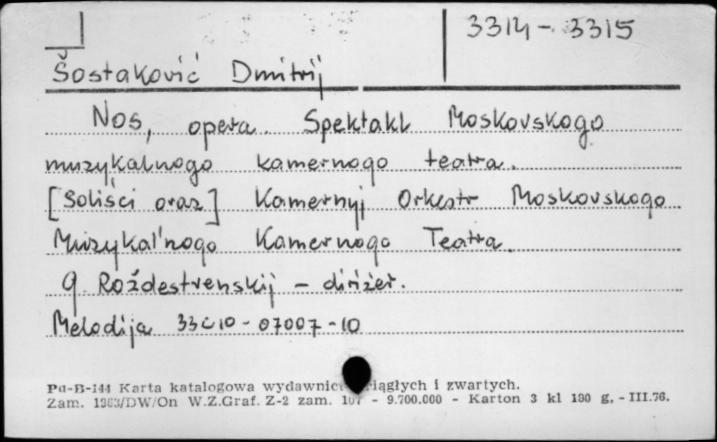 3314 - 3315
Šostaković Dmitrij
Nos, opera. Spektakl Moskovskogo
muzykalnogo kamernogo teatra.
[Soliści oraz] Kamernyj Orkestr Moskovskogo
Muzykal'nogo Kamernogo Teatra.
G. Roždestvenskij - dirižer.
Melodija 33C10-07007-10
Pu-B-144 Karta katalogowa wydawnictw ciągłych i zwartych.
Zam. 1363/DW/On W.Z.Graf. Z-2 zam. - 9.700.000 - Karton 3 kl 180 g. - III.76.